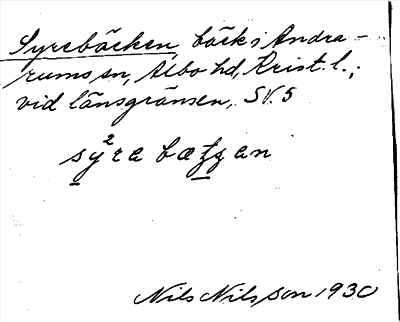 Syrebäcken, bäck i Andra-
rums sn, Albo hd, Krist. l.,
vid länsgränsen, SV. 5
sy²ra bæȶȥan
Nils Nilsson 1930